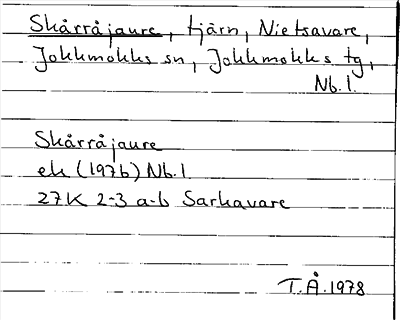 Skårråjaure, tjärn, Nietsavare,
Jokkmokks sn, Jokkmokks tg,
Nb.l.
Skårråjaure
ek (1976) Nb.l
27K 2-3 a-b Sarkavare
T.Å.1978